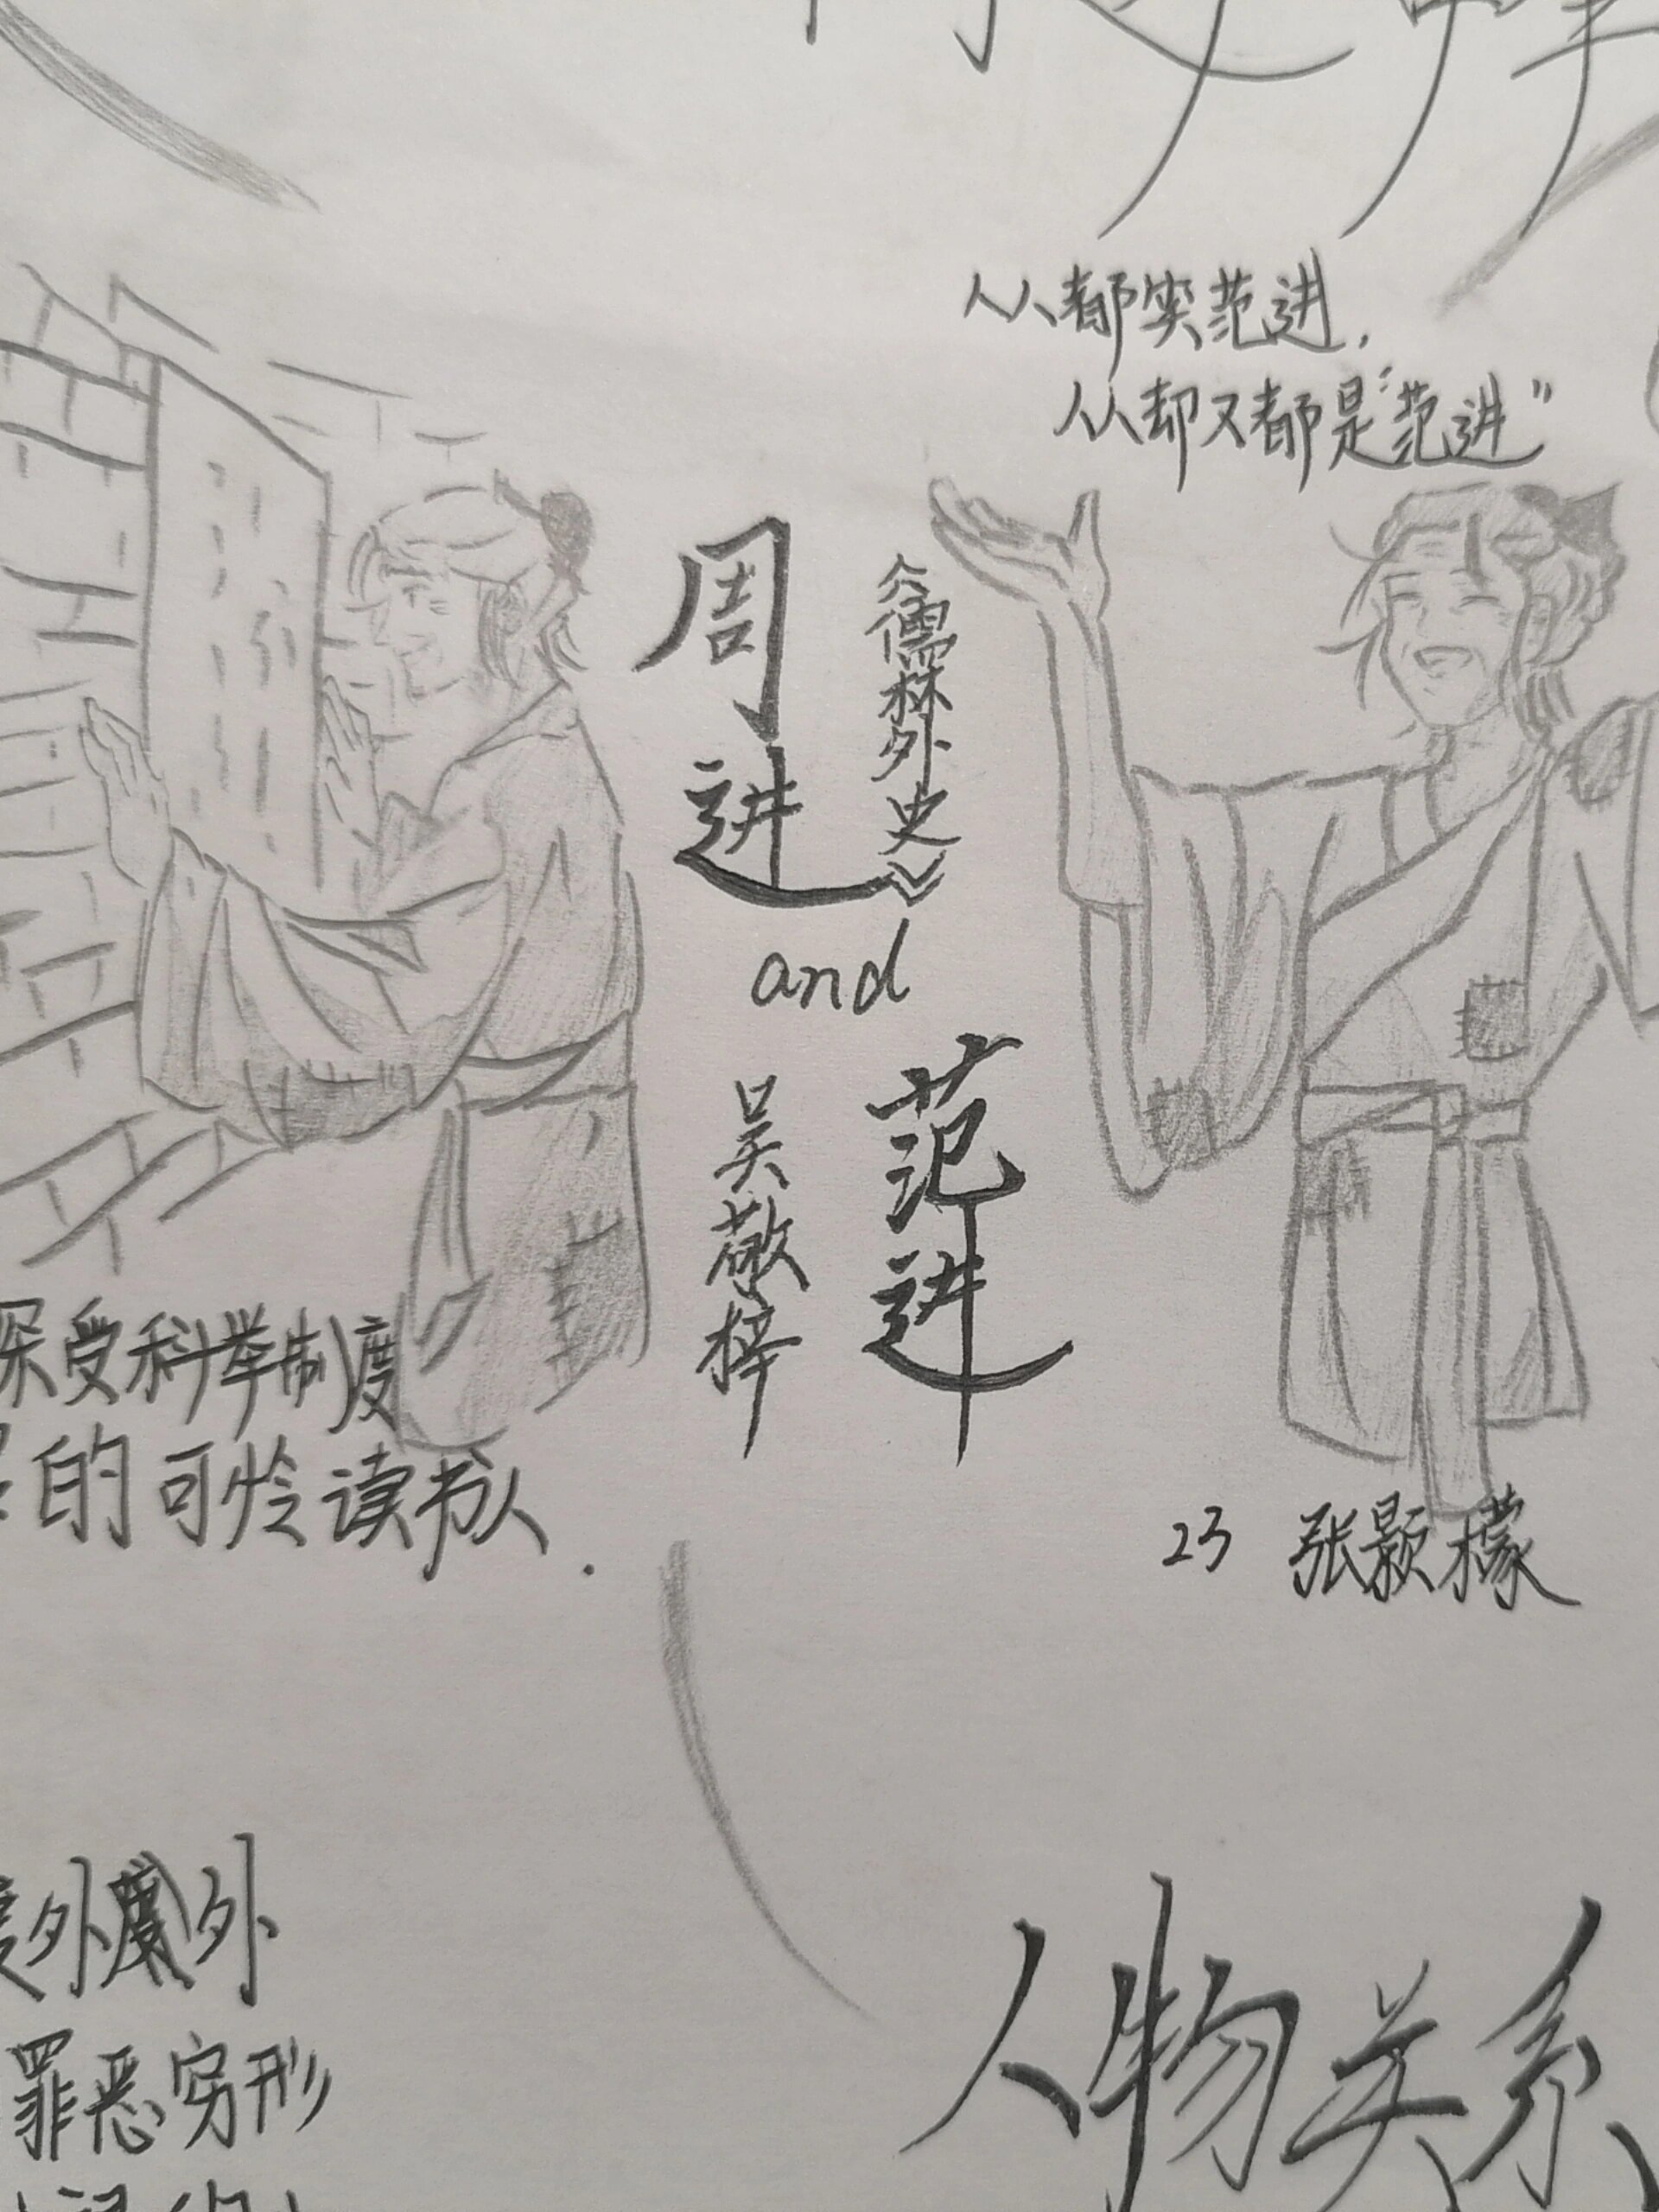 人人都笑范进,
人人却又都是"范进"
周进
《儒林外史》
and
吴敬梓
范进
深受科举制度
的可怜读书人.
23 张颢檬
外 外
罪恶穷形
人物关系